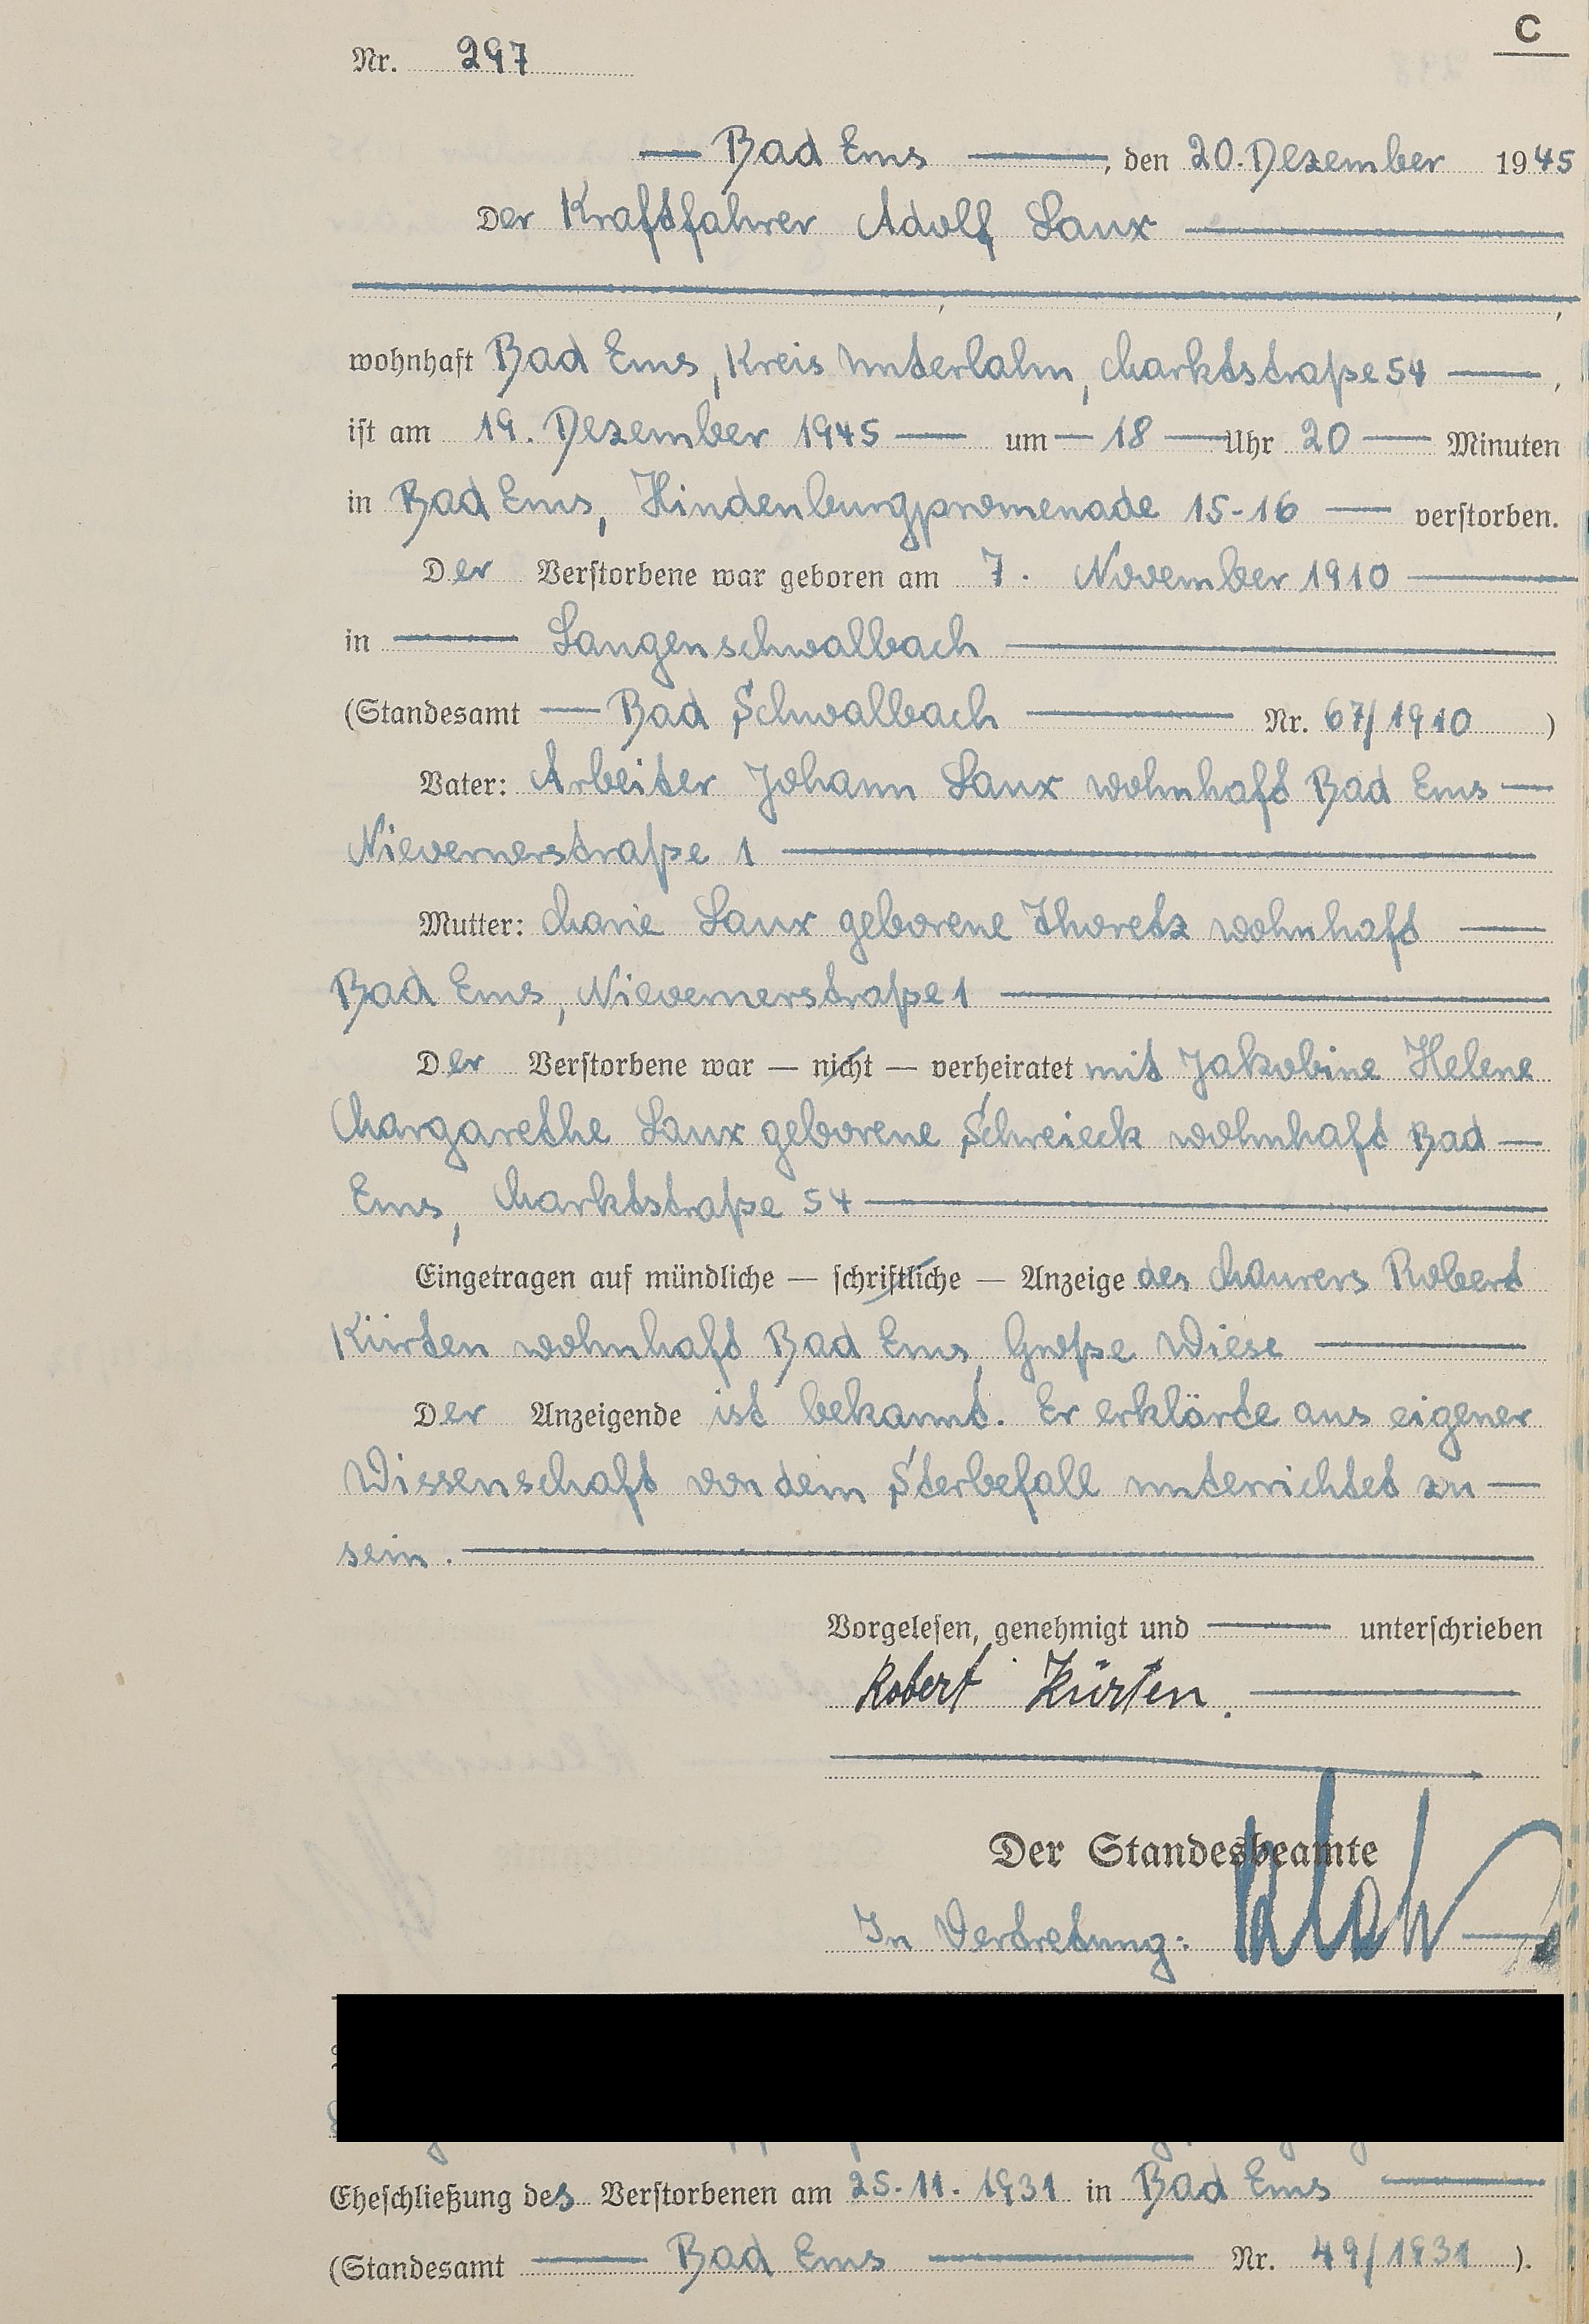 C
Nr. 297
Bad Ems, den 20. Dezember 1945
Der Kraftfahrer Adolf Laux
wohnhaft Bad Ems, Kreis Unterlahn, Marktstraße 54,
ist am 19. Dezember 1945 um 18 Uhr 20 Minuten
in Bad Ems, Hindenburgpromenade 15-16 verstorben.
Der Verstorbene war geboren am 7. November 1910
in Langenschwalbach
(Standesamt Bad Schwalbach Nr. 67/1910)
Vater: Arbeiter Johann Laux wohnhaft Bad Ems
Nievernerstraße 1
Mutter: Marie Laux geborene Thoretz wohnhaft
Bad Ems, Nievernerstraße 1
Der Verstorbene war — nicht — verheiratet mit Jakobine Helene
Margarethe Laux geborene Schreieck wohnhaft Bad
Ems, Marktstraße 54
Eingetragen auf mündliche — schriftliche — Anzeige des Maurers Robert
Kürten wohnhaft Bad Ems, Große Wiese
Der Anzeigende ist bekannt. Er erklärte aus eigener
Wissenschaft von dem Sterbefall unterrichtet zu
sein.
Vorgelesen, genehmigt und unterschrieben
Robert Kürten.
Der Standesbeamte
In Vertretung:
Eheschließung des Verstorbenen am 25.11.1931 in Bad Ems
(Standesamt Bad Ems Nr. 49/1931).